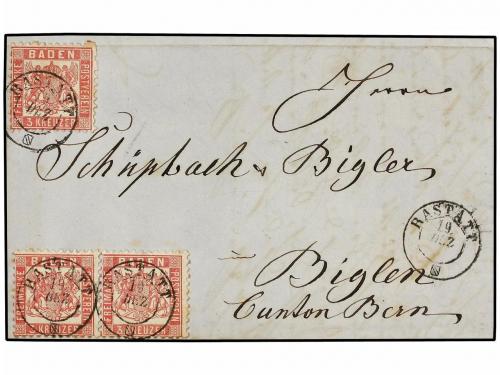 BADEN
FREIMARKE
POSTVEREIN
3 KREUZER
RASTATT
DEZ
Herrn
Schüpbach & Bigler
RASTATT
19
DEZ
Biglen
Canton Bern
BADEN
FREIMARKE
3 KREUZER
RASTATT
19
DEZ
BADEN
FREIMARKE
3 KREUZER
RASTATT
19
DEZ